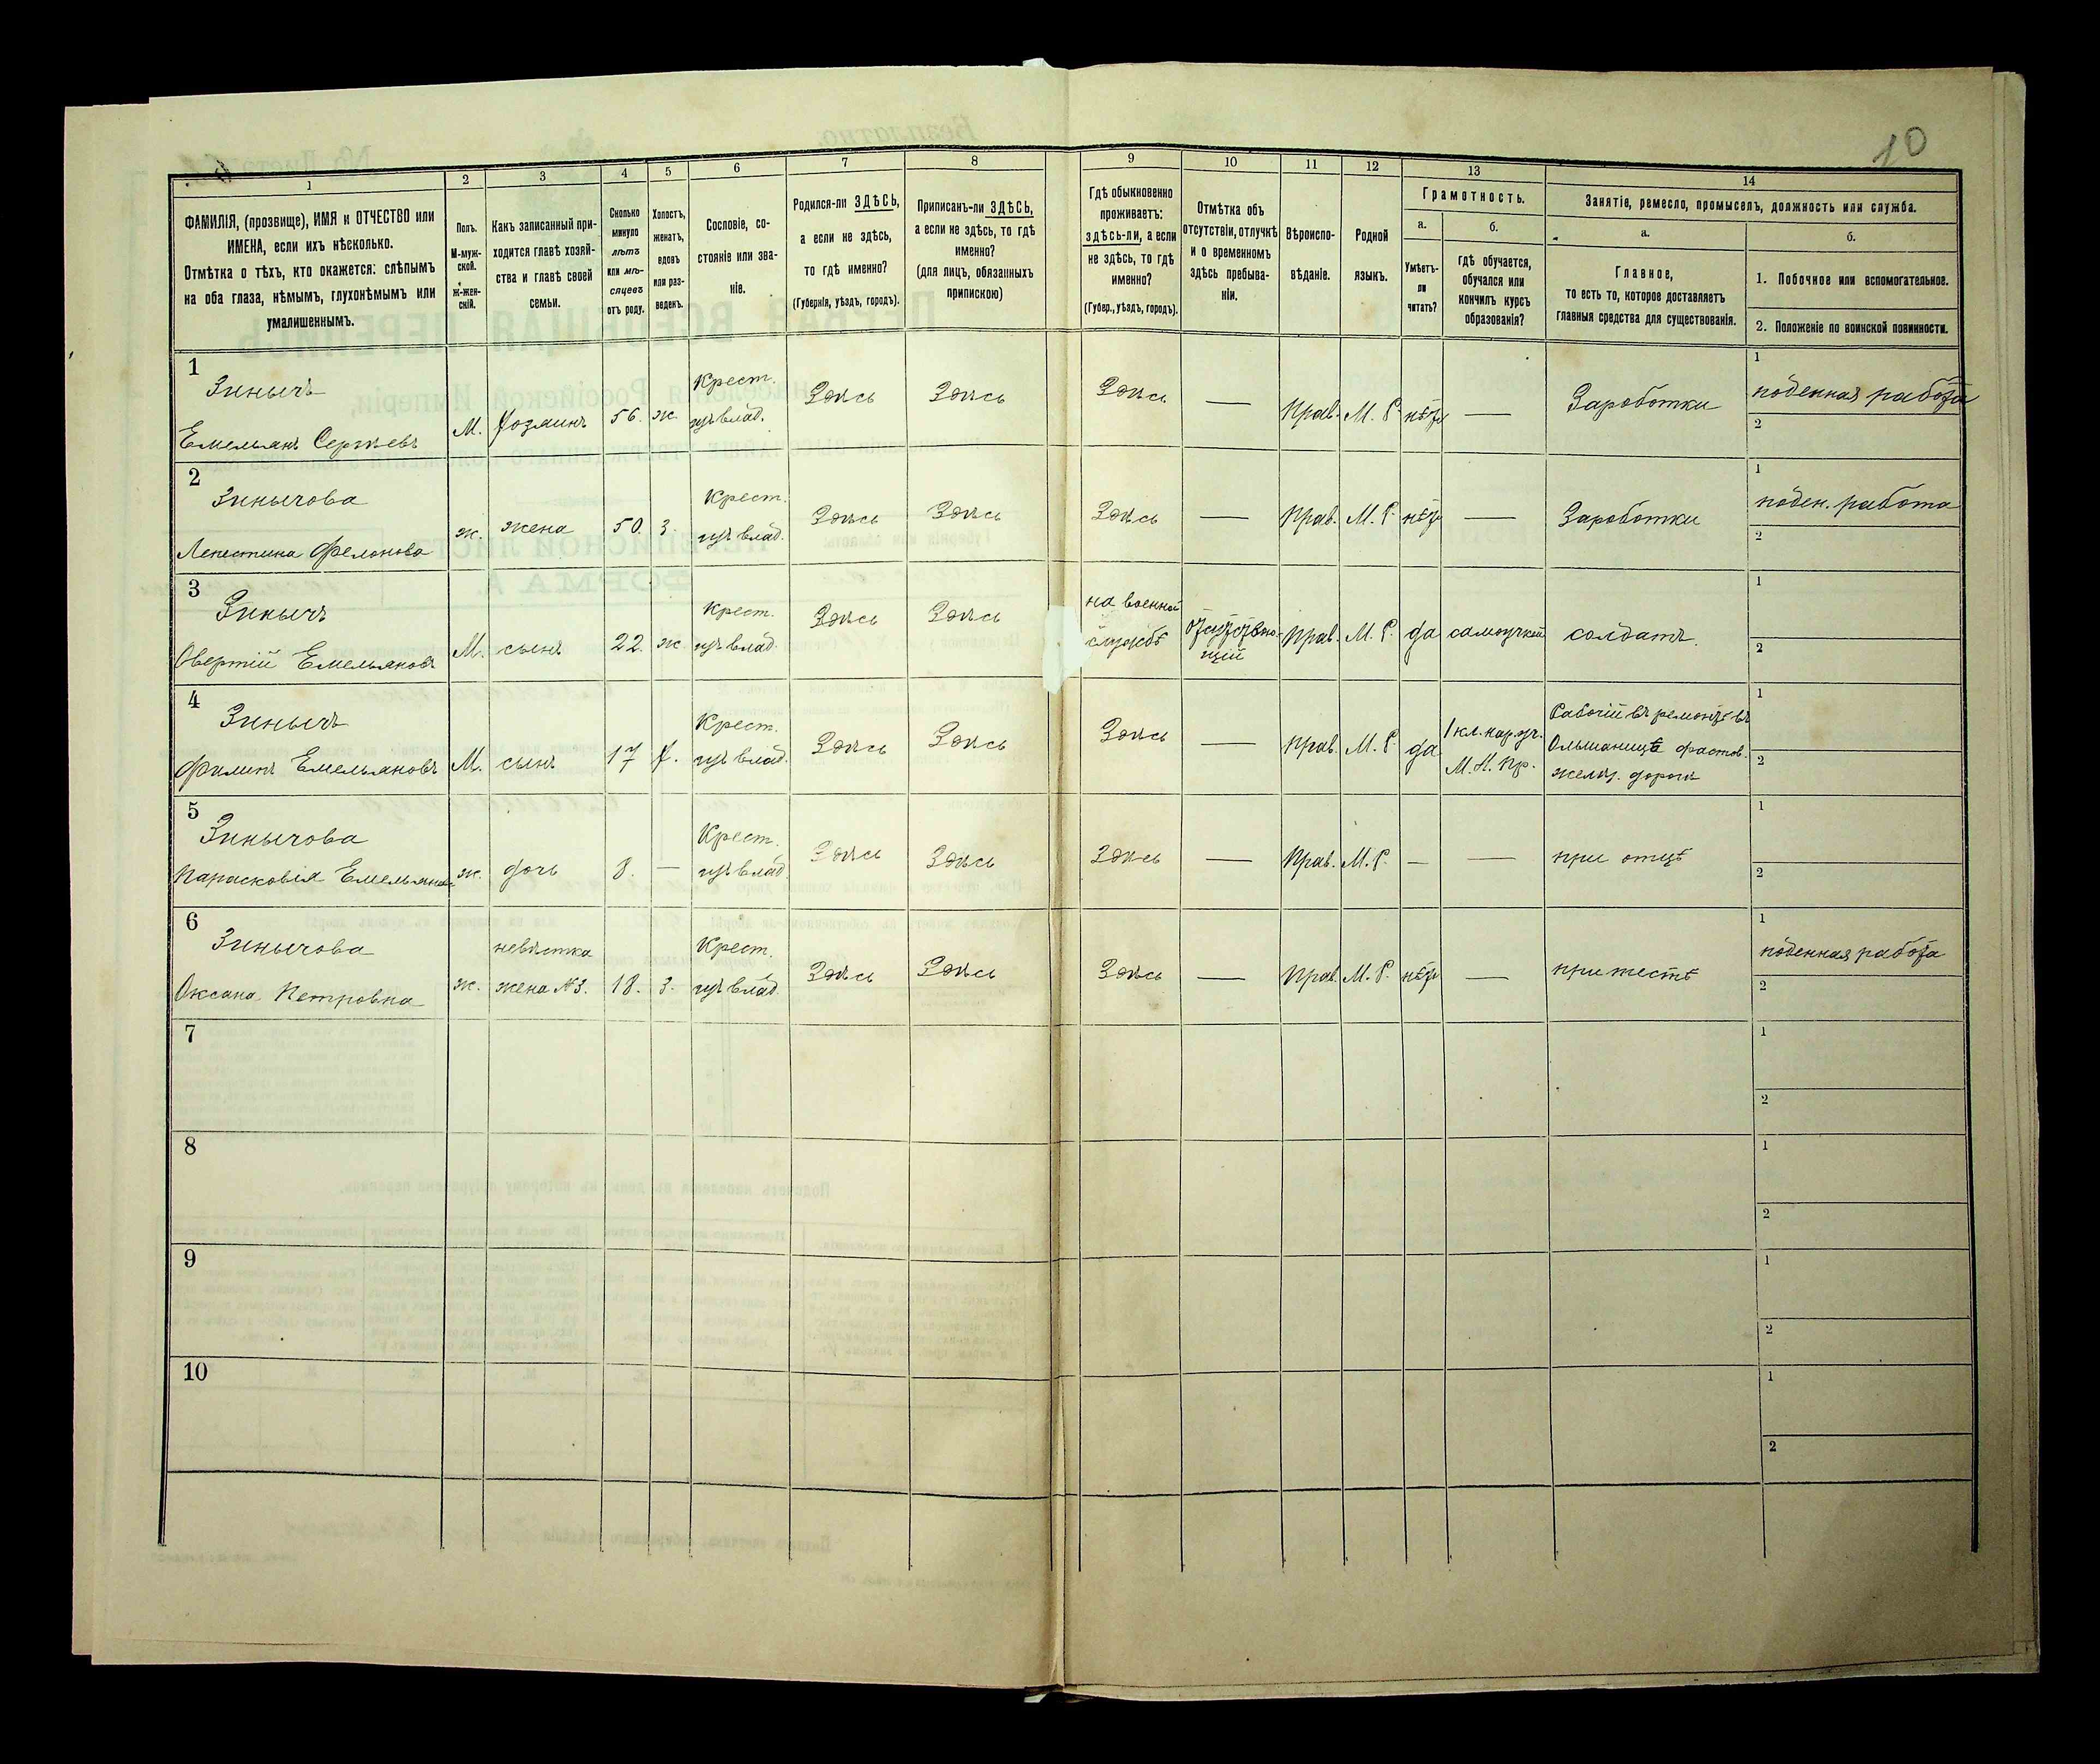 10
1 2 3 4 5 6 7 8 9 10 11 12 13 14
ФАМИЛІЯ, (прозвище), ИМЯ и ОТЧЕСТВО или
ИМЕНА, если ихъ нѣсколько.
Отмѣтка о тѣхъ, кто окажется: слѣпымъ
на оба глаза, нѣмымъ, глухонѣмымъ или
умалишеннымъ.
Полъ.
М-муж-
ской.
Ж-жен-
скій.
Какъ записанный при-
ходится главѣ хозяй-
ства и главѣ своей
семьи.
Сколько
минуло
лѣтъ
или мѣ-
сяцевъ
отъ роду.
Холостъ,
женатъ,
вдовъ
или раз-
веденъ.
Сословіе, со-
стояніе или зва-
ніе.
Родился-ли ЗДѢСЬ,
а если не здѣсь,
то гдѣ именно?
(Губернія, уѣздъ, городъ).
Приписанъ-ли ЗДѢСЬ,
а если не здѣсь, то гдѣ
именно?
(для лицъ, обязанныхъ
припискою)
Гдѣ обыкновенно
проживаетъ:
здѣсь-ли, а если
не здѣсь, то гдѣ
именно?
(Губер., уѣздъ, городъ).
Отмѣтка объ
отсутствіи, отлучкѣ
и о временномъ
здѣсь пребыва-
ніи.
Вѣроиспо-
вѣданіе.
Родной
языкъ.
Грамотность.
а.
Умѣетъ-
ли
читать?
б.
гдѣ обучается,
обучался или
кончилъ курсъ
образованія?
Занятіе, ремесло, промыселъ, должность или служба.
а.
Главное,
то есть то, которое доставляетъ
главныя средства для существованія.
б.
1. Побочное или вспомогательное.
2. Положеніе по воинской повинности.
1
Зинычъ
Емельянъ Сергѣевъ
М. Хозяинъ 56. ж.
Крест.
изъ влад.
Здѣсь Здѣсь Здѣсь — Прав. М. Р. нѣтъ — Заработки
1 поденная работа
2
2
Зинычова
Ж. жена 50. З.
Крест.
изъ влад.
Здѣсь Здѣсь Здѣсь — Прав. М. Р. нѣтъ — Заработки
1 поден. работа
2
3
Зинычъ
Овертій Емельяновъ
М. сынъ 22. ж
Крест.
изъ влад.
Здѣсь Здѣсь
на военной
службѣ
отсутствую-
щій
Прав. М. Р. да самоучкой солдатъ.
1
2
4
Зинычъ
Филипъ Емельяновъ
М. сынъ 17 Х.
Крест.
изъ влад.
Здѣсь Здѣсь Здѣсь — Прав. М. Р. да
1 кл. нар. уч.
М. Н. Пр.
Рабочій въ ремонтѣ въ
Ольшаницѣ Фастов.
желѣз. дороги
1
2
5
Зинычова
Парасковія Емельянов
Ж. дочь 8. —
Крест.
изъ влад.
Здѣсь Здѣсь Здѣсь — Прав. М. Р. — — при отцѣ
1
2
6
Зинычова
Оксана Петровна
Ж.
невѣстка
жена №3. 18. З.
Крест.
изъ влад.
Здѣсь Здѣсь Здѣсь — Прав. М. Р. нѣтъ — при тестѣ
1 поденная работа
2
7
1
2
8
1
2
9
1
2
10
1
2